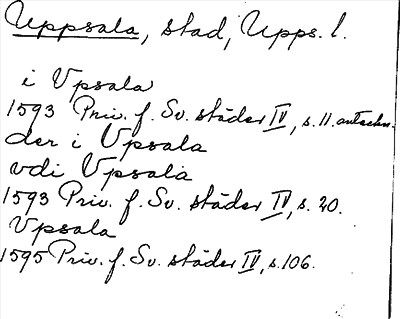 Uppsala, stad, Upps. l.
i Vpsala
1593 Priv. f. Sv. städer IV, s. 11. anteckn.
der i Vpsala
vdi Vpsala
1593 Priv. f. Sv. städer IV, s. 20.
Vpsala
1595 Priv. f. Sv. städer IV, s. 106.